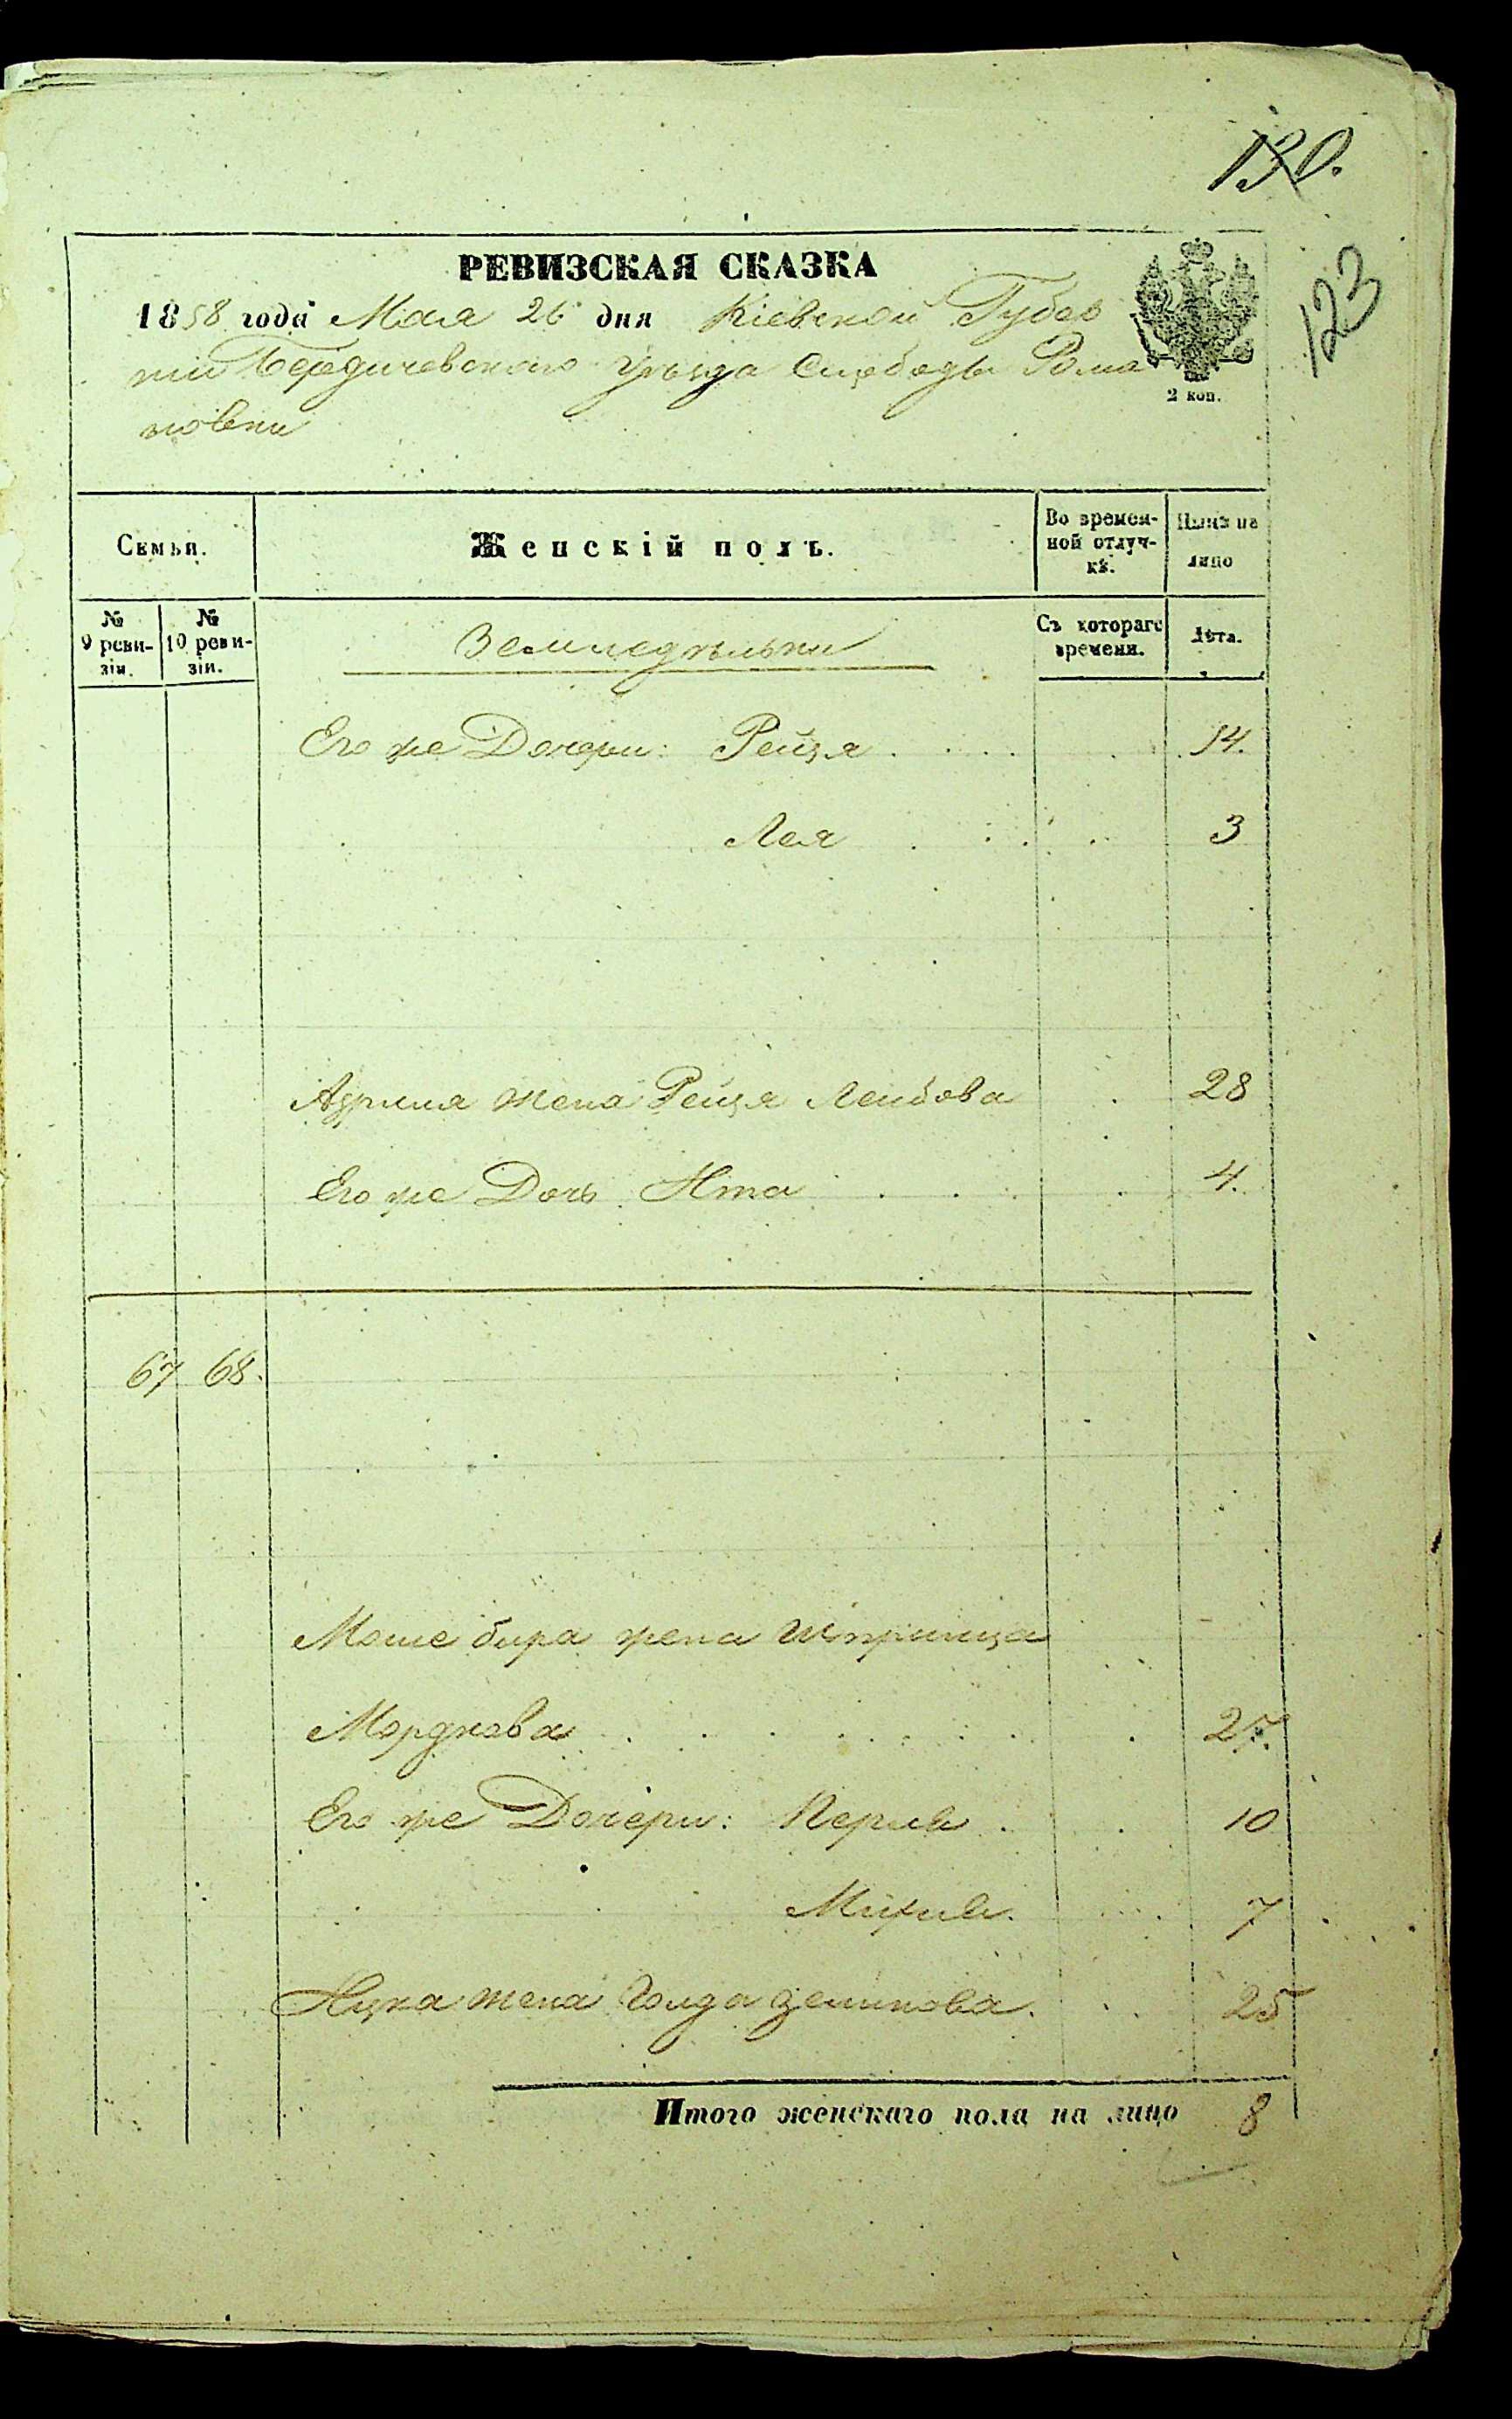 130.
123
РЕВИЗСКАЯ СКАЗКА
1858 года Мая 26 дня Кіевской Губер
ніи Бердичевского уѣзда Слободы Рома
новки
2 коп.
Семьи.
Женскій полъ.
Во времен-
ной отлуч-
кѣ.
Нынѣ на
лицо
№
9 реви-
зіи.
№
10 реви-
зіи.
Земледѣльцы
Съ котораго
времени.
Лѣта.
Его же Дочери: Рейзя 14.
Лея 3
жена Рейзя Лейбова 28
Его же Дочь Ита 4.
67 68.
Моше бира жена Шпринца
Мордкова 27.
Его же Дочери: Перля 10
7
Ицка жена Голда Зелікова. 25
Итого женскаго пола на лицо 8